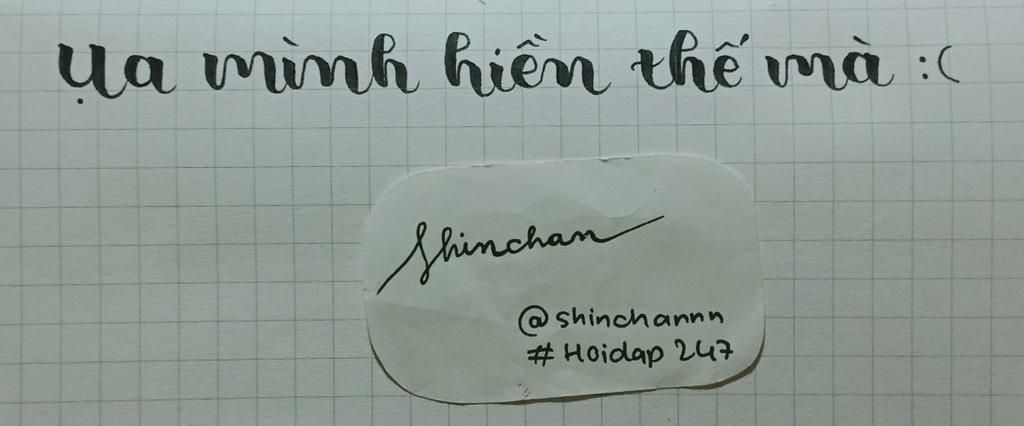 Ụa mình hiền thế mà :(
Shinchan
@shinchannn
# Hoidap 247